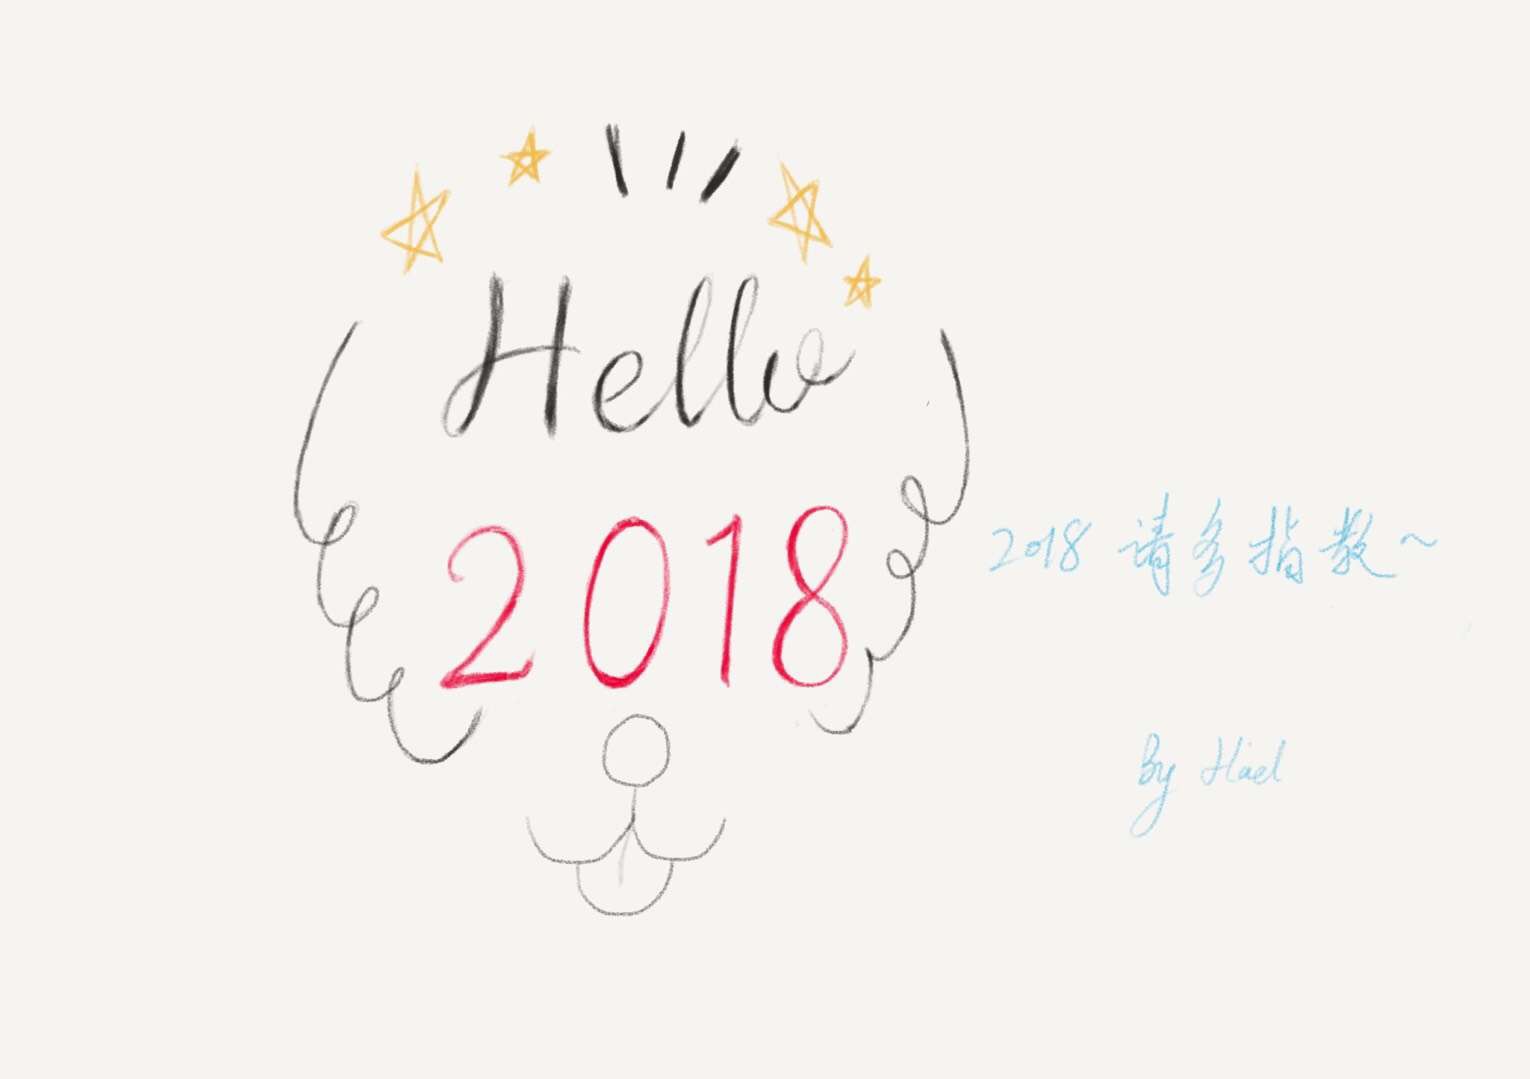 Hello
2018
2018 请多指教~
By Hael